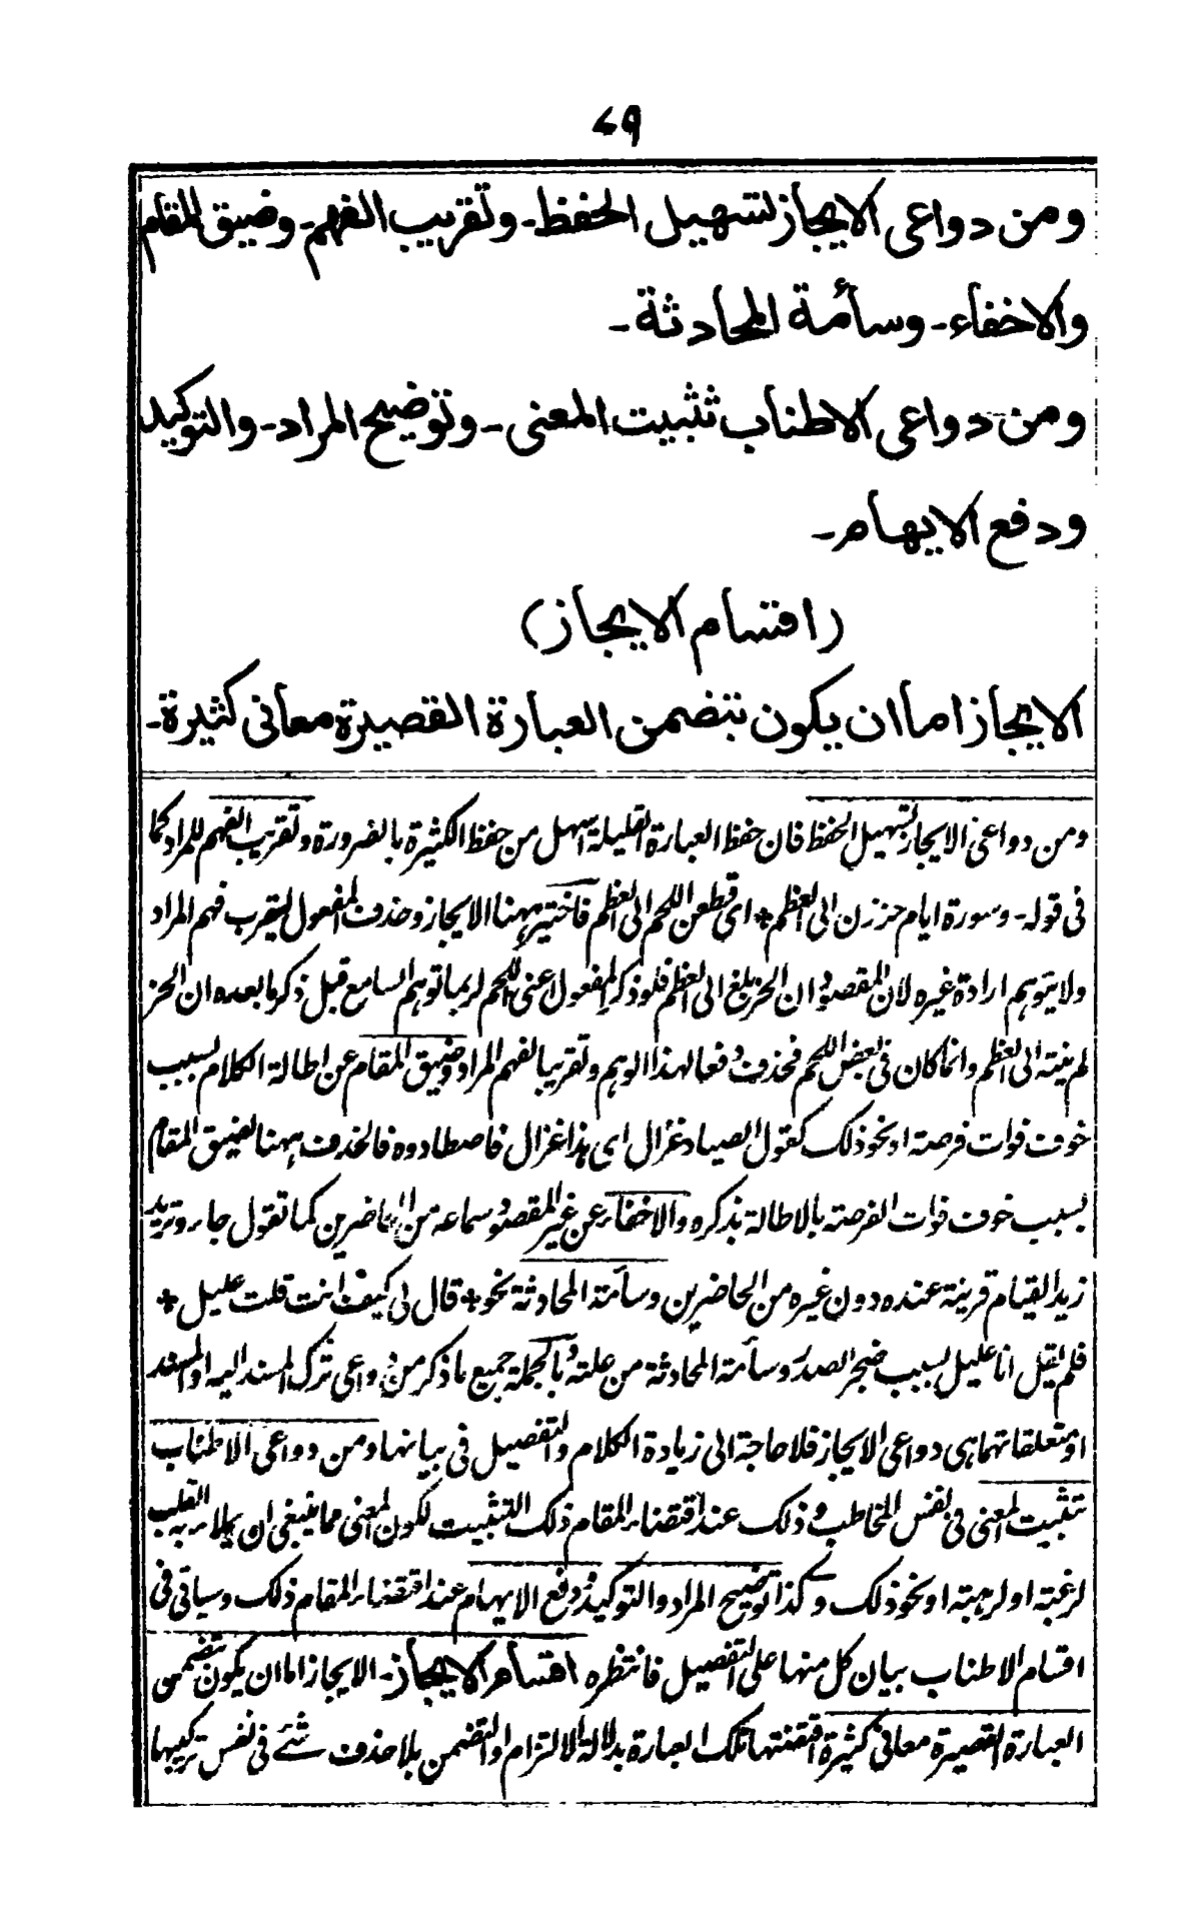 ٤٩
ومن دواعى الايجاز تسهيل الحفظ۔ وتقريب الفهم۔ وضيق المقام
والاخفاء۔ وسأمة المحادثة۔
ومن دواعى الاطناب تثبيت المعنى۔ وتوضيح المراد۔ والتوكيد
ودفع الايهام۔
(اقسام الايجاز)
الايجاز اما ان يكون بتضمن العبارة القصيرة معانى كثيرة۔
ومن دواعى الايجاز تسهيل الحفظ فان حفظ العبارة القليلة اسهل من حفظ الكثيرة بالضرورة وتقريب الفهم للمراد كما
فى قوله۔ وسورة ايام حززن الى العظم + اى قطعن اللحم الى العظم فاختير ههنا الايجاز وحذف المفعول ليقرب فهم المراد
ولا يتوهم ارادة غيره لان المقصود ان الحز بلغ الى العظم فلو ذكر المفعول اعنى اللحم لربما توهم السامع قبل ذكر ما بعده ان الحز
لم ينته الى العظم وانما كان فى بعض اللحم فحذف دفعا لهذا الوهم وتقريبا لفهم المراد وضيق المقام عن اطالة الكلام بسبب
خوف فوات فرصة او نحو ذلك كقول الصياد غزال اى هذا غزال فاصطادوه فالحذف ههنا لضيق المقام
بسبب خوف فوات الفرصة بالاطالة بذكره والاخفاء عن غير المقصود سماعه من الحاضرين كما تقول جاء وتريد
زيد القيام قرينة عنده دون غيره من الحاضرين وسأمة المحادثة نحو + قال لى كيف انت قلت عليل +
فلم يقل انا عليل بسبب ضجر الصدر وسأمة المحادثة من علته وبالجملة جميع ما ذكر من دواعى ترك المسند اليه والمسند
او متعلقاتهما هى دواعى الايجاز فلا حاجة الى زيادة الكلام والتفصيل فى بيانها ومن دواعى الاطناب
تثبيت المعنى فى نفس المخاطب وذلك عند اقتضاء المقام ذلك التثبيت لكون المعنى مما ينبغى ان يملاء به القلب
لرغبة او لرهبة او نحو ذلك وكذا توضيح المراد والتوكيد ودفع الايهام عند اقتضاء المقام ذلك وسيأتى فى
اقسام الاطناب بيان كل منها على التفصيل فانتظره اقسام الايجاز۔ الايجاز اما ان يكون بتضمن
العبارة القصيرة معانى كثيرة اقتضتها تلك العبارة بدلالة الالتزام او التضمن بلا حذف شئ فى نفس تركيبها